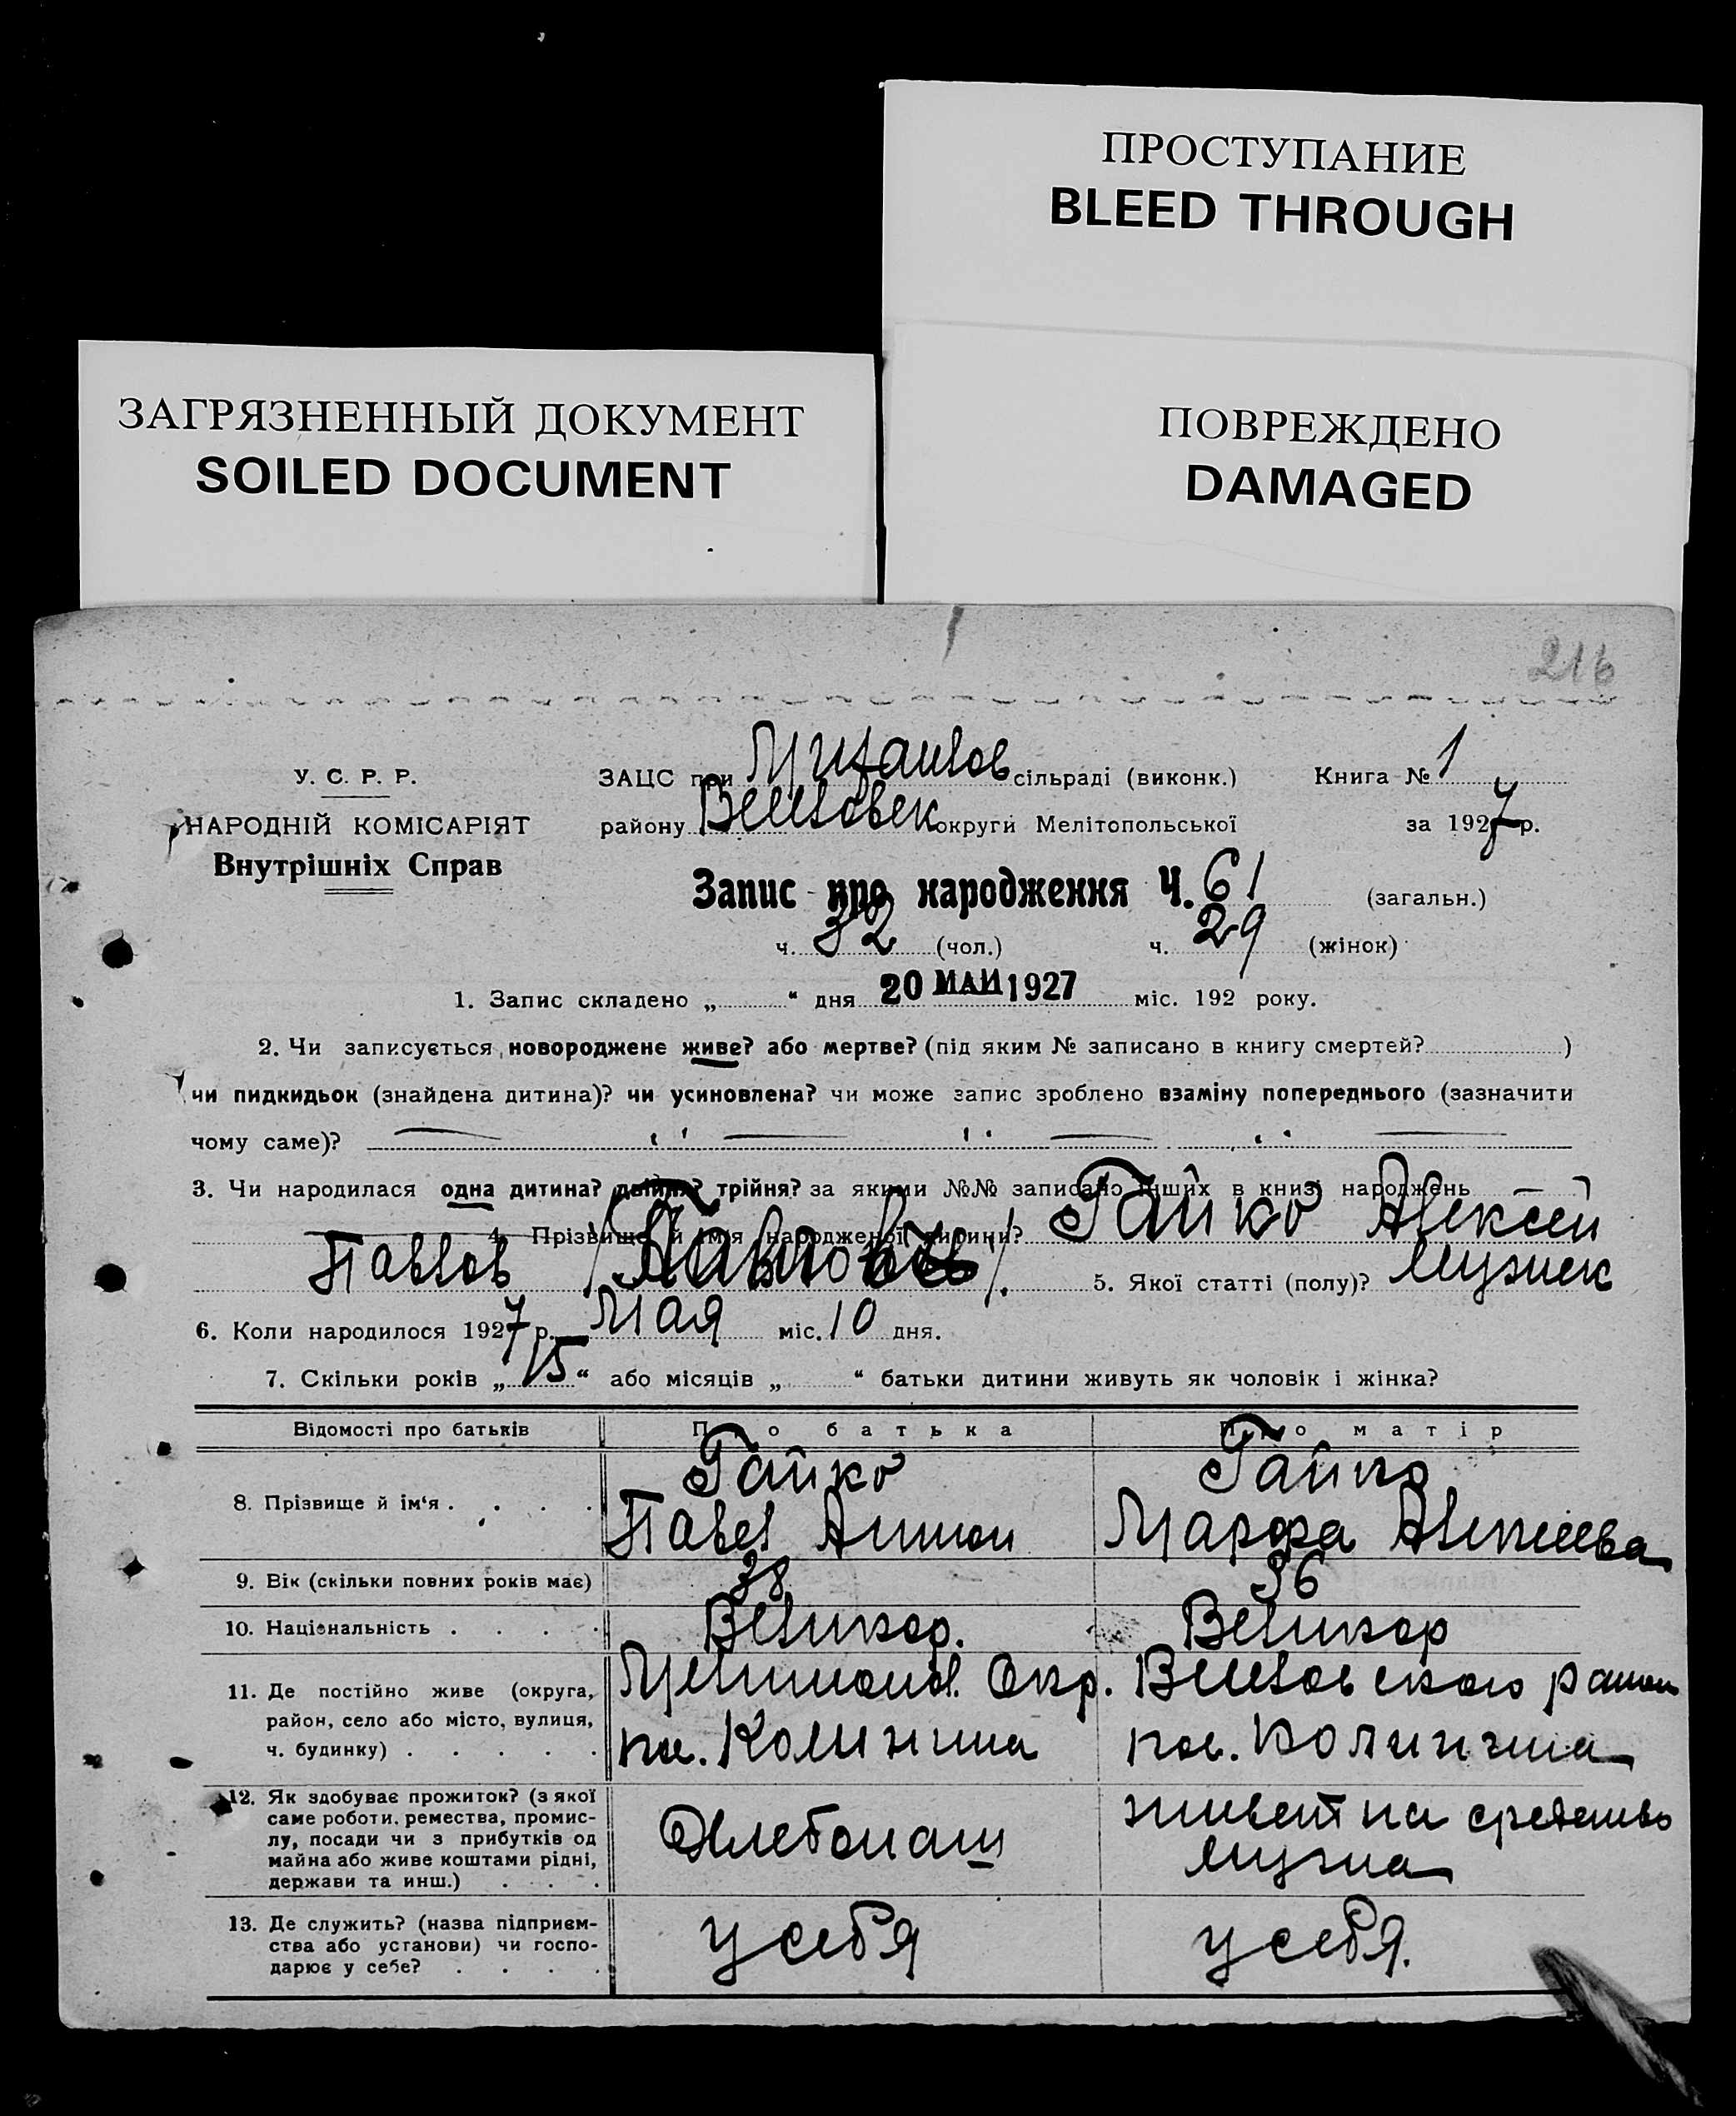 ПРОСТУПАНИЕ
BLEED THROUGH
ЗАГРЯЗНЕННЫЙ ДОКУМЕНТ
SOILED DOCUMENT
ПОВРЕЖДЕНО
DAMAGED
216
У. С. Р. Р.
НАРОДНІЙ КОМІСАРІЯТ
Внутрішніх Справ
ЗАЦС при сільраді (виконк.) Книга № 1
району округи Мелітопольської за 1927 р.
Запис про народження Ч. 61 (загальн.)
ч. 32 (чол.) ч. 29 (жінок)
1. Запис складено „ “ дня 20 МАЙ 1927 міс. 192 року.
2. Чи записується новороджене живе? або мертве? (під яким № записано в книгу смертей? )
чи пидкидьок (знайдена дитина)? чи усиновлена? чи може запис зроблено взаміну попереднього (зазначити
чому саме)?
3. Чи народилася одна дитина? двійня? трійня? за якими №№ записано інших в книзі народжень
4. Прізвище й ім'я народженої дитини? Гайко Алексей
Павлов 5. Якої статті (полу)? Мужск
6. Коли народилося 1927 р. Мая міс. 10 дня.
7. Скільки років „ 15 “ або місяців „ “ батьки дитини живуть як чоловік і жінка?
Відомості про батьків Про батька Про матір
8. Прізвище й ім‘я . . . . Гайко Гайко
Павел Антон Марфа Алексеева
9. Вік (скільки повних років має) 38 36
10. Національність . . . . Великор. Великор
11. Де постійно живе (округа, район, село або місто, вулиця, ч. будинку) . . . . . Мелитопол. Окр. Веселовского район
пос. Калинина пос. Калинина
12. Як здобуває прожиток? (з якої саме роботи, ремества, промислу, посади чи з прибутків од майна або живе коштами рідні, держави та инш.) . . . Хлебопаш живет на средства
мужа
13. Де служить? (назва підприємства або установи) чи господарює у себе? . . . . у себя у себя.